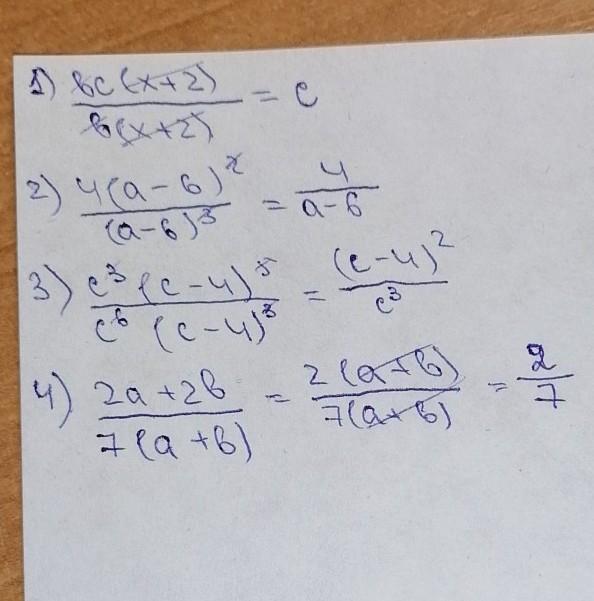 1) bc(x+2)/b(x+2) = c
2) 4(a-b)²/(a-b)³ = 4/a-b
3) c³(c-4)⁵/c⁶(c-4)³ = (c-4)²/c³
4) 2a+2b/7(a+b) = 2(a+b)/7(a+b) = 2/7